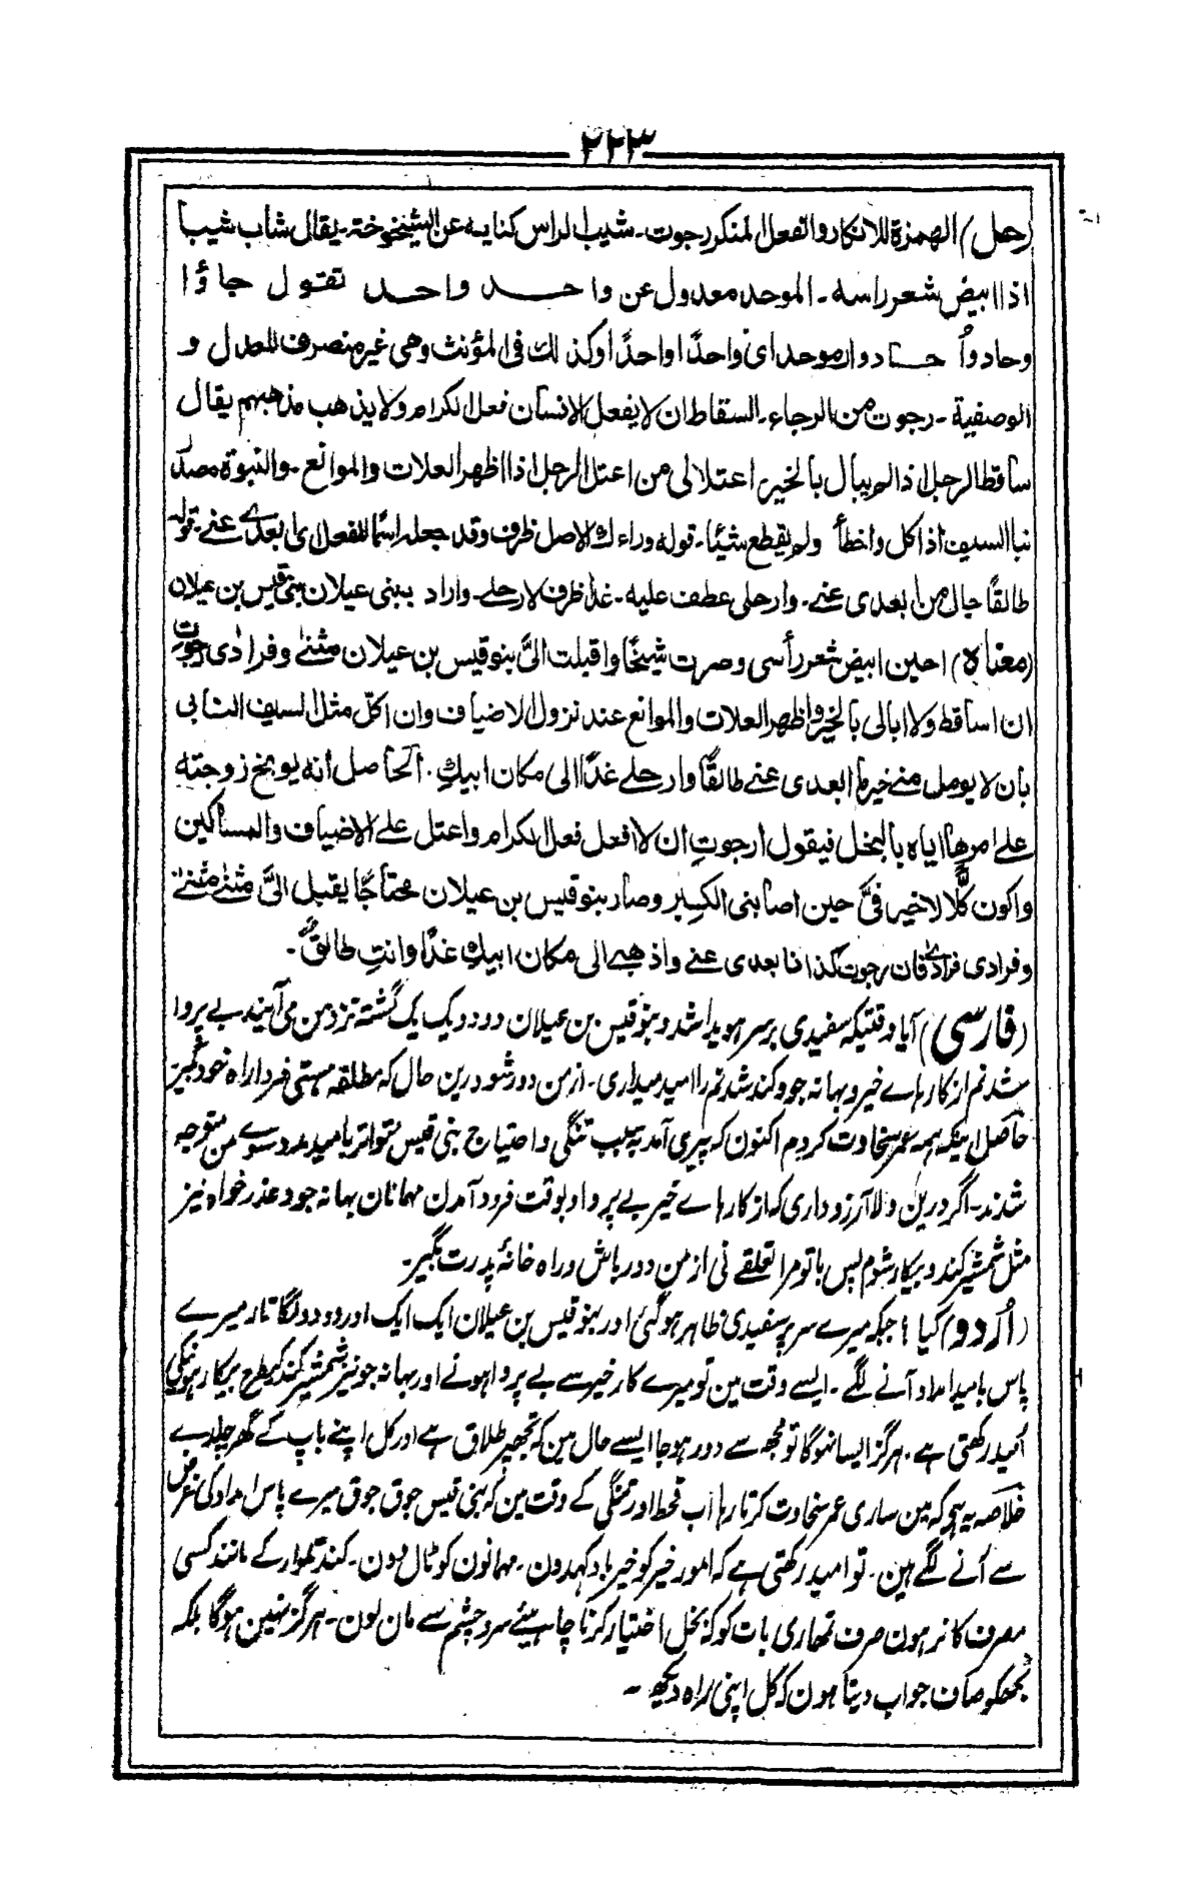 ۲۲۳
(حل) الهمزة للانكار والفعل المنكر رجوت۔ شيب الراس كناية عن الشيخوخة۔ يقال شاب شيبا
اذا ابيض شعر راسه۔ الموحد معدول عن واحد واحد تقول جاؤا
وحادوا موحد اى واحدًا واحدًا وكذلك فى المؤنث وهى غير منصرف للعدل و
الوصفية۔ رجوت من الرجاء۔ السقاط ان لا يفعل الانسان فعل الكرام ولا يذهب مذهبهم يقال
ساقط الرجل اذا لم يبال بالخير۔ اعتلالى من اعتل الرجل اذا اظهر العلات والموانع۔ والنبوة مصدر
نبا السيف اذا كل واخطأ ولم يقطع شيئا۔ قوله وراءك الاصل ظرف وقد جعله اسمًا للفعل اى ابعدى عنى۔ قوله
طالقًا حال من ابعدى عنى۔ وارحلى عطف عليه۔ غدا ظرف لارحلى۔ واراد ببنى عيلان بنى قيس بن عيلان
(معناه) احين ابيض شعر رأسى وصرت شيخًا واقبلت الىَّ بنو قيس بن عيلان مثنى وفرادى رجوت
ان اساقط ولا ابالى بالخير واظهر العلات والموانع عند نزول الاضياف وان اكلّ مثل السيف النابى
بان لا يومل منى خير ما ابعدى عنى طالقًا وارحلى غدًا الى مكان ابيكِ۔ الحاصل انه يوبخ زوجته
على امرها اياه بالبخل فيقول ارجوتِ ان لا افعل فعل الكرام واعتل على الاضياف والمساكين
واكون كَلًّا لا خير فىَّ حين اصابنى الكبر وصار بنو قيس بن عيلان محتاجًا يقبل الىَّ مثنى مثنى
وفرادى فرادى فان رجوت كذا فابعدى عنى واذهبى الى مكان ابيكِ غدًا وانتِ طالقٌ۔
(فارسی) آیا وقتیکہ سفیدی برسر ہویدا شد و بنو قیس بن عیلان دو دو یک یک گشتہ نزد من می آیند بے پروا
شدنم از کارہاے خیر و بہانہ جو و کند شدنم را امید میداری۔ از من دور شو درین حال کہ مطلقہ ہستی فردا راہ خود گیر
حاصل اینکہ ہمہ عمر سخاوت کردم اکنون کہ پیری آمد بہ سبب تنگی و احتیاج بنی قیس متواتر بامید مدد سوے من متوجہ
شدند۔ اگر درین ولا آرزو داری کہ از کارہاے خیر بے پروا و بوقت فرود آمدن مہمانان بہانہ جو و عذر خواہ و نیز
مثل شمشیر کند و بیکار شوم پس با تو مرا تعلقے نی از من دور باش و راہ خانۂ پدرت بگیر۔
(اُردو) کیا! جبکہ میرے سر پر سفیدی ظاہر ہوگئی اور بنو قیس بن عیلان ایک ایک اور دو دو لگاتار میرے
پاس بامید امداد آنے لگے۔ ایسے وقت مین تو میرے کار خیر سے بے پروا ہونے اور بہانہ جو نیز شمشیر کند کیطرح بیکار ہونیکی
اُمید رکھتی ہے۔ ہرگز ایسا نہوگا تو مجھ سے دور ہوجا ایسے حال مین کہ تجھپر طلاق ہے اور کل اپنے باپ کے گھر چلدے
خلاصہ یہ ہے کہ مین ساری عمر سخاوت کرتا رہا اب قحط اور تنگی کے وقت مین کہ بنی قیس جوق جوق میرے پاس امداد کی غرض
سے آنے لگے ہین۔ تو امید رکھتی ہے کہ امور خیر کو خیر باد کہدون۔ مہمانون کو ٹال دون۔ کند تلوار کے مانند کسی
مصرف کا نرہون صرف تمہاری بات کو کہ بخل اختیار کرنا چاہیئے سر و چشم سے مان لون۔ ہرگز نہین ہوگا بلکہ
تجھکو صاف جواب دیتا ہون کہ کل اپنی راہ دیکھ۔